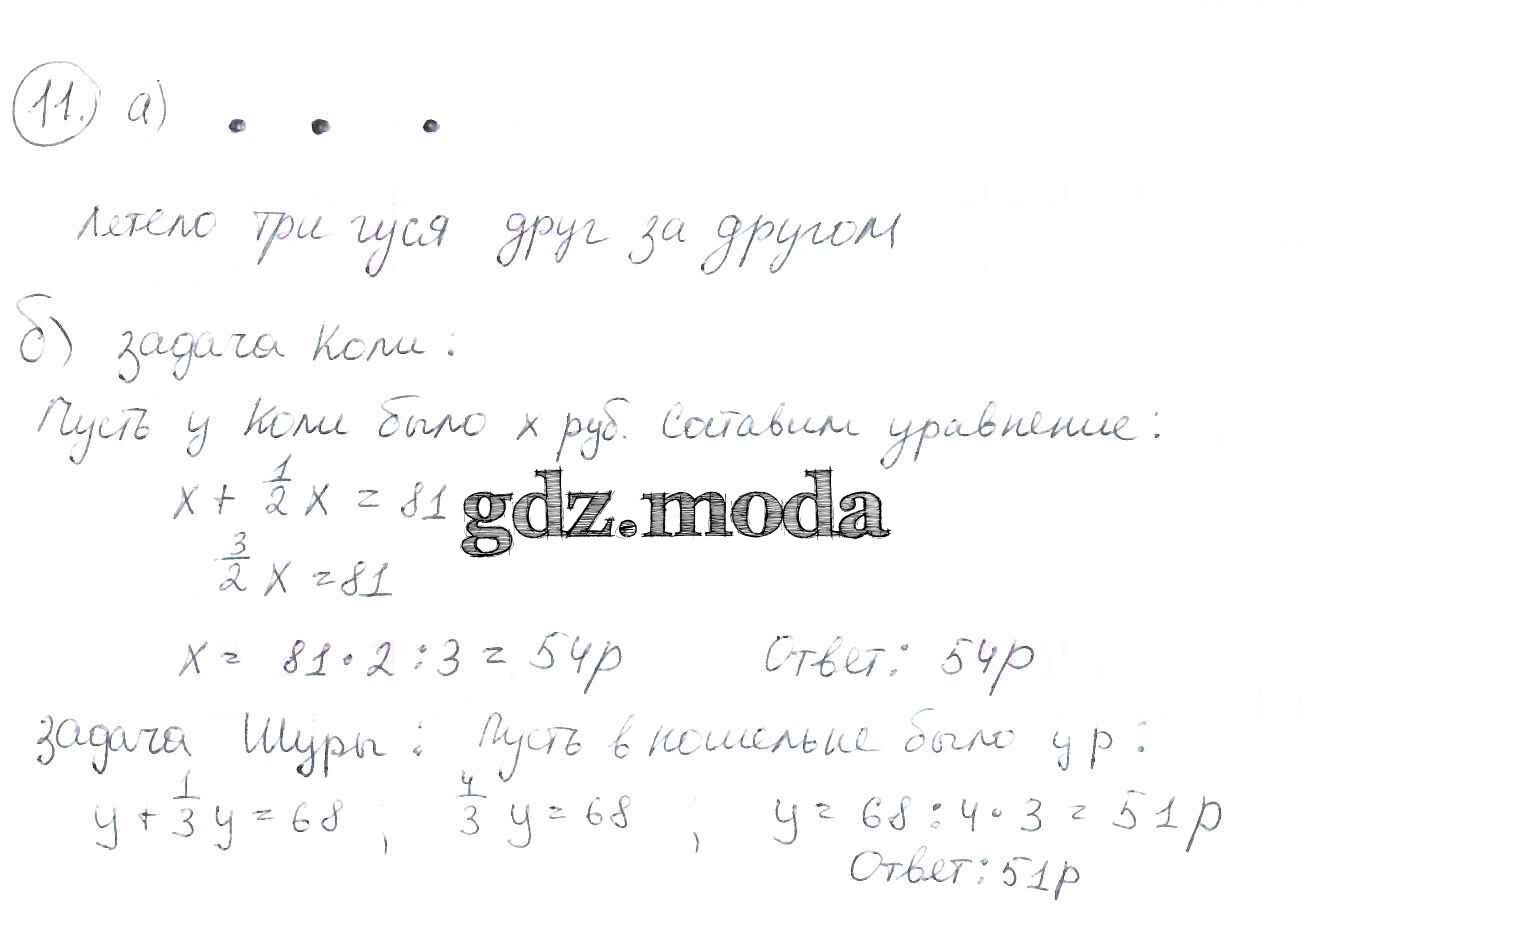 11. а)
Летело три гуся друг за другом
б) задача Коли:
Пусть у Коли было x руб. Составим уравнение:
x + 1/2 x = 81
gdz.moda
3/2 x = 81
x = 81 · 2 : 3 = 54р Ответ: 54р
задача Шуры: Пусть в кошельке было y р:
y + 1/3 y = 68 , 4/3 y = 68 , y = 68 : 4 · 3 = 51р
Ответ: 51р